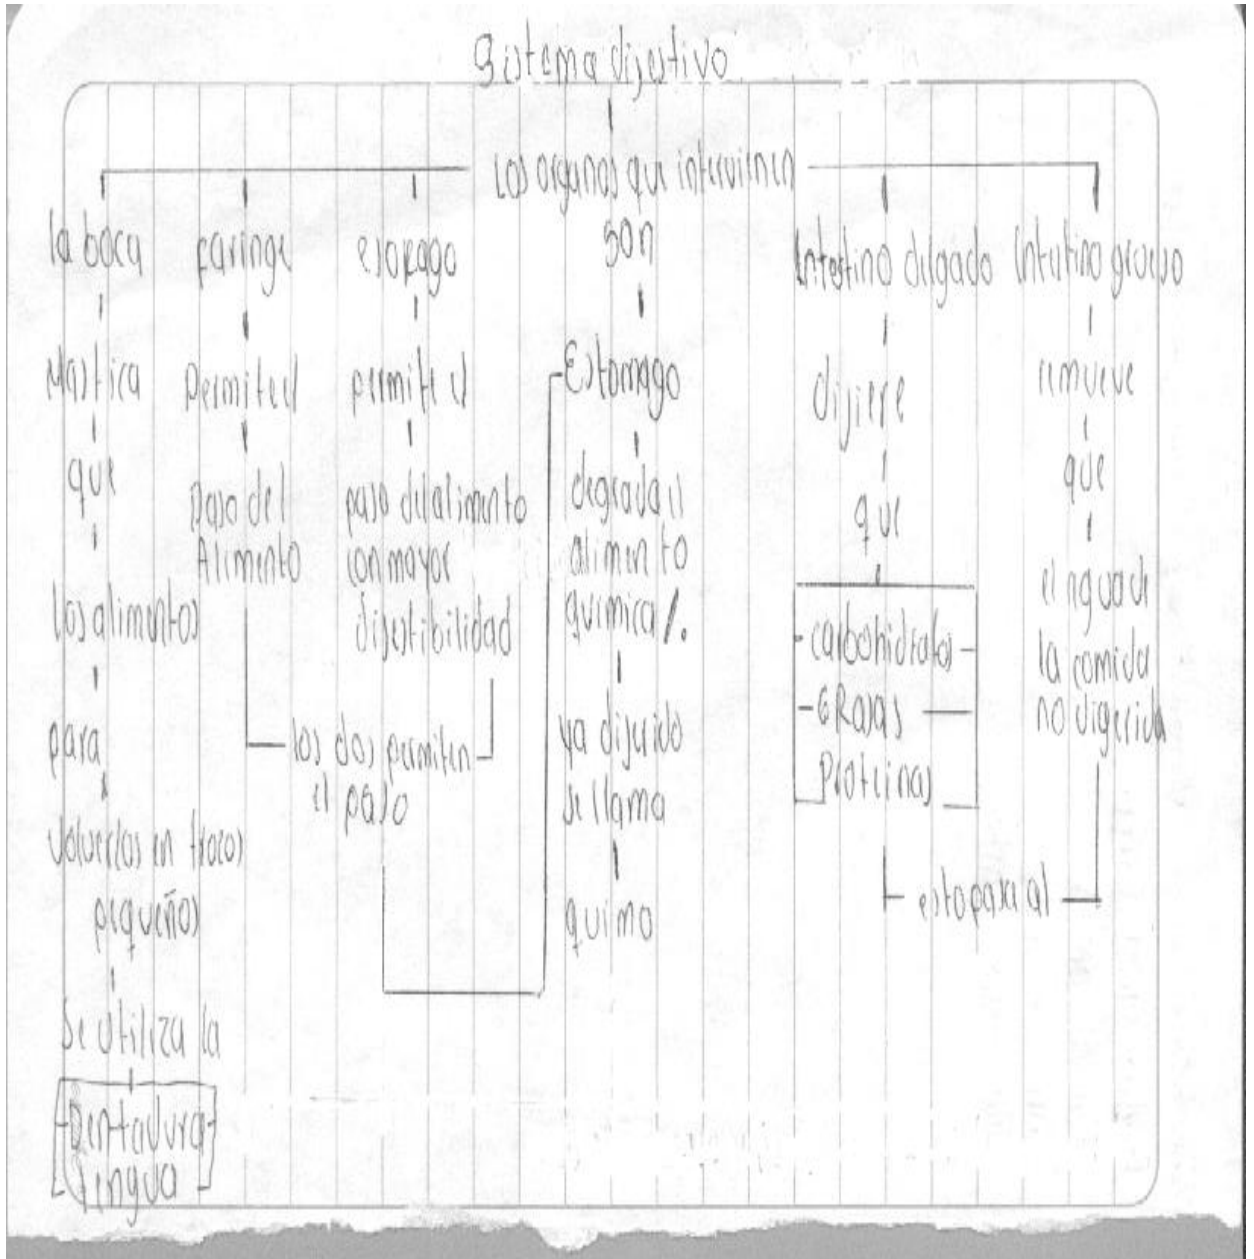 Sistema dijestivo
Los organos que intervienen
son
la boca
Mastica
que
los alimentos
para
volverlos en trozos
pequeños
Se utiliza la
Dentadura
lingua
faringe
Permite el
paso del
Alimento
esofago
permite el
paso del alimento
con mayor
dijestibilidad
los dos permiten
el paso
Estomago
degrada el
alimento
quimica/.
ya dijerido
se llama
quimo
Intestino delgado
dijiere
que
- carbohidratos -
- GRasas
Proteinas
Intestino grueso
remueve
que
el agua de
la comida
no digerida
esto pasa al